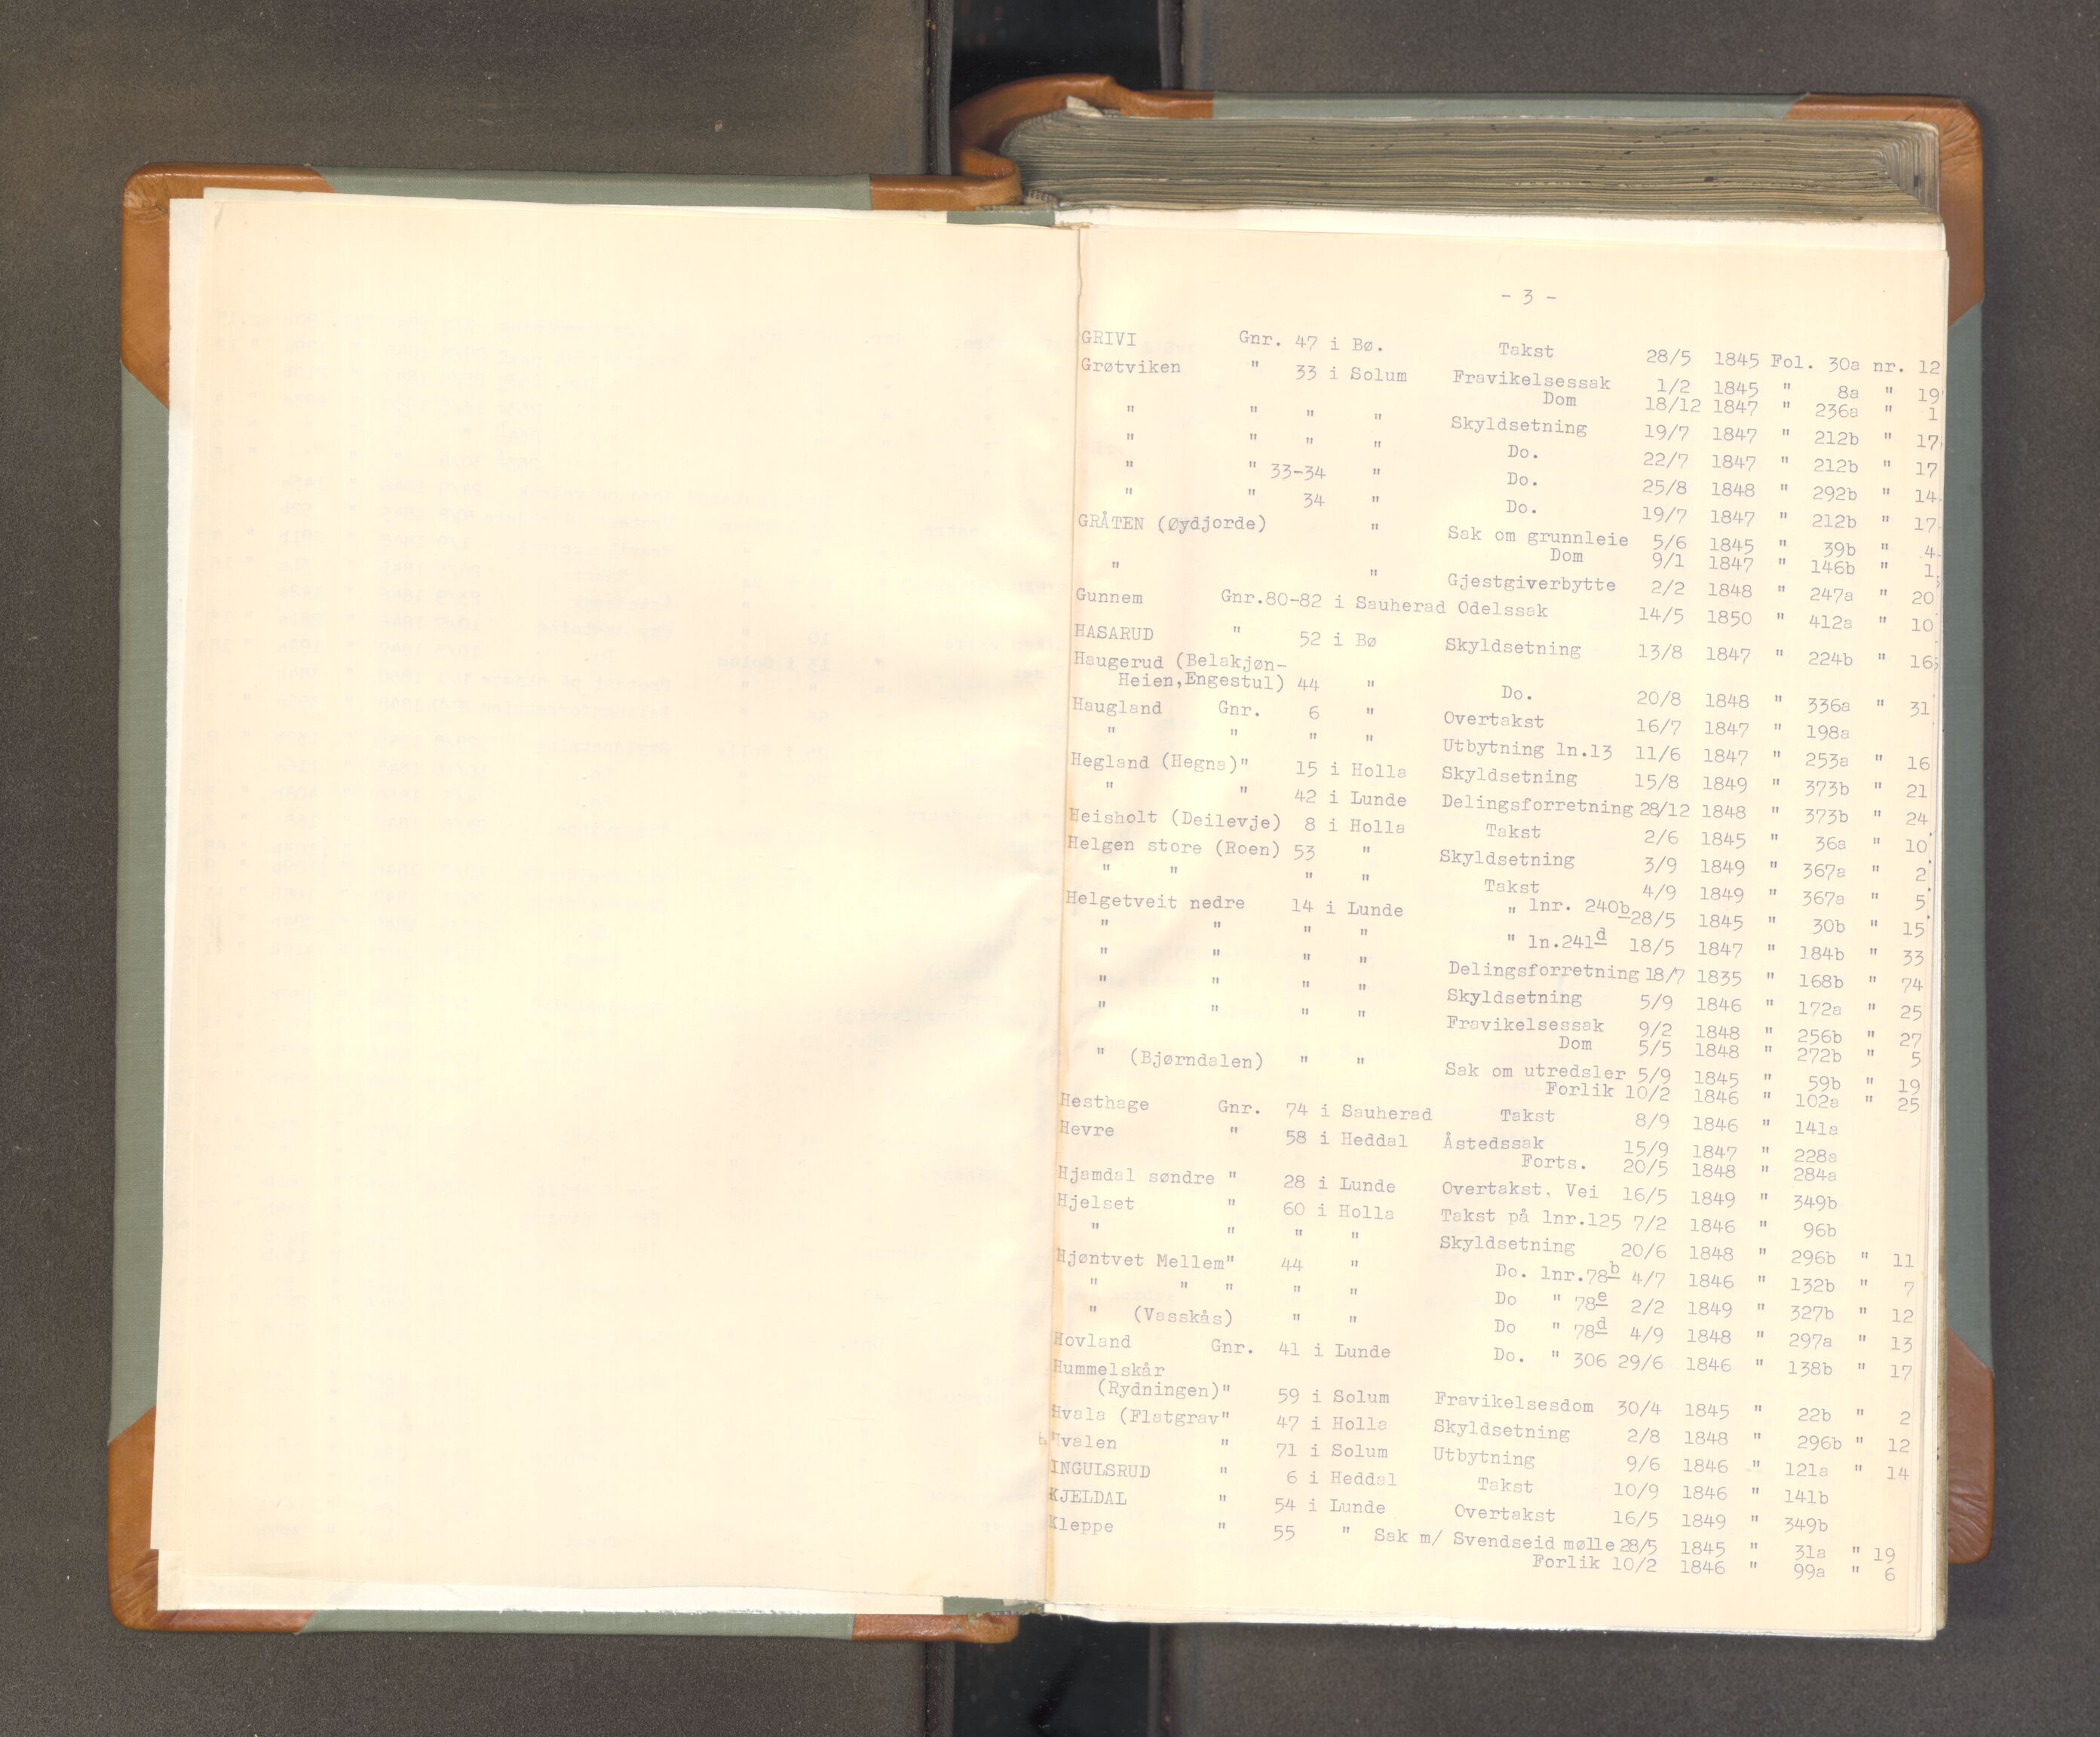 - 3 -
GRIVI Gnr. 47 i Bø. Takst 28/5 1845 Fol. 30a nr. 12
Grøtviken " 33 i Solum Fravikelsessak 1/2 1845 " 8a " 19
Dom 18/12 1847 " 236a " 1
" " " " Skyldsetning 19/7 1847 " 212b " 17
" " " " Do. 22/7 1847 " 212b " 17
" " 33-34 " Do. 25/8 1848 " 292b " 14
" " 34 " Do. 19/7 1847 " 212b " 17
GRÅTEN (Øydjorde) " Sak om grunnleie 5/6 1845 " 39b " 4
Dom 9/1 1847 " 146b " 1
" " Gjestgiverbytte 2/2 1848 " 247a " 20
Gunnem Gnr.80-82 i Sauherad Odelssak 14/5 1850 " 412a " 10
HASARUD " 52 i Bø Skyldsetning 13/8 1847 " 224b " 16
Haugerud (Belakjøn-
Heien,Engestul) 44 " Do. 20/8 1848 " 336a " 31
Haugland Gnr. 6 " Overtakst 16/7 1847 " 198a
" " " " Utbytning ln.13 11/6 1847 " 253a " 16
Hegland (Hegna)" 15 i Holla Skyldsetning 15/8 1849 " 373b " 21
" " 42 i Lunde Delingsforretning 28/12 1848 " 373b " 24
Heisholt (Deilevje) 8 i Holla Takst 2/6 1845 " 36a " 10
Helgen store (Roen) 53 " Skyldsetning 3/9 1849 " 367a " 2
" " " " Takst 4/9 1849 " 367a " 5
Helgetveit nedre 14 i Lunde " lnr. 240b 28/5 1845 " 30b " 15
" " " " " ln.241d 18/5 1847 " 184b " 33
" " " " Delingsforretning 18/7 1835 " 168b " 74
" " " " Skyldsetning 5/9 1846 " 172a " 25
" " " " Fravikelsessak 9/2 1848 " 256b " 27
Dom 5/5 1848 " 272b " 5
" (Bjørndalen) " " Sak om utredsler 5/9 1845 " 59b " 19
Forlik 10/2 1846 " 102a " 25
Hesthage Gnr. 74 i Sauherad Takst 8/9 1846 " 141a
Hevre " 58 i Heddal Åstedssak 15/9 1847 " 228a
Forts. 20/5 1848 " 284a
Hjamdal søndre " 28 i Lunde Overtakst, Vei 16/5 1849 " 349b
Hjelset " 60 i Holla Takst på lnr.125 7/2 1846 " 96b
" " " " Skyldsetning 20/6 1848 " 296b " 11
Hjøntvet Mellem" 44 " Do. lnr.78b 4/7 1846 " 132b " 7
" " " " " Do " 78e 2/2 1849 " 327b " 12
" (Vasskås) " " Do " 78d 4/9 1848 " 297a " 13
Hovland Gnr. 41 i Lunde Do. " 306 29/6 1846 " 138b " 17
Hummelskår
(Rydningen)" 59 i Solum Fravikelsesdom 30/4 1845 " 22b " 2
Hvala (Flatgrav" 47 i Holla Skyldsetning 2/8 1848 " 296b " 12
Hvalen " 71 i Solum Utbytning 9/6 1846 " 121a " 14
INGULSRUD " 6 i Heddal Takst 10/9 1846 " 141b
KJELDAL " 54 i Lunde Overtakst 16/5 1849 " 349b
Kleppe " 55 " Sak m/ Svendseid mølle 28/5 1845 " 31a " 19
Forlik 10/2 1846 " 99a " 6